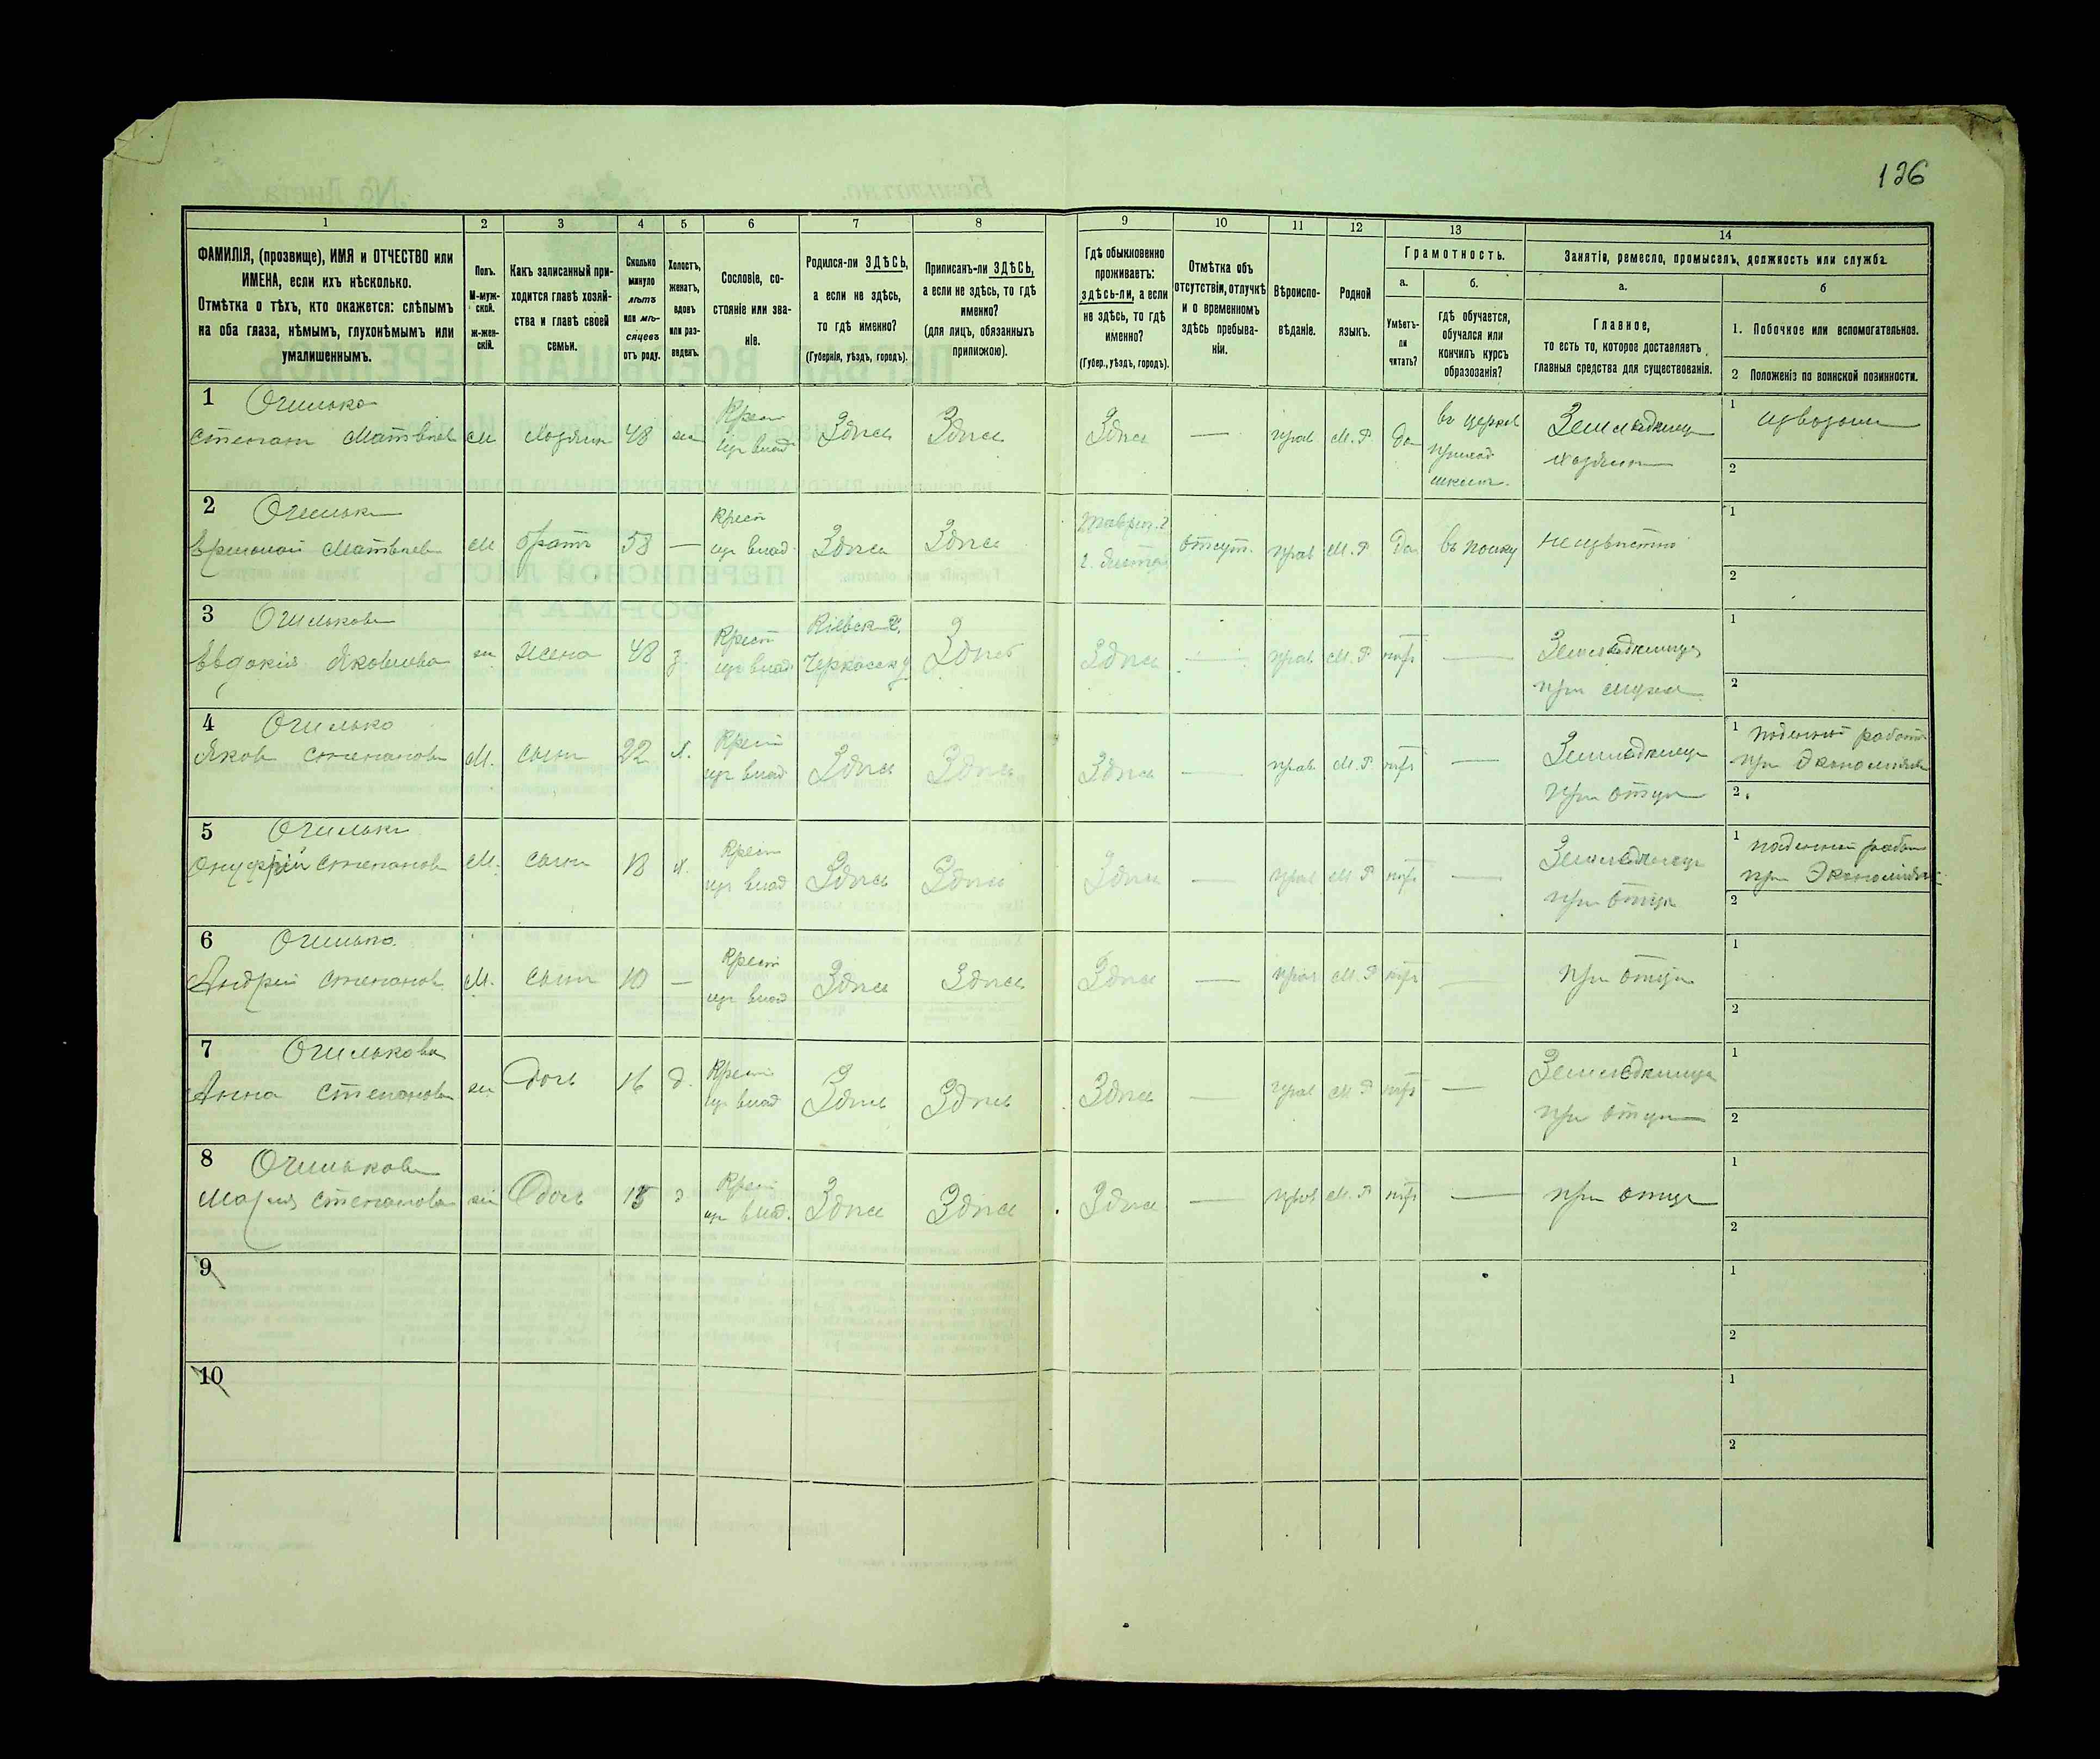 126
1
2
3
4
5
6
7
8
9
10
11
12
13
14
ФАМИЛІЯ, (прозвище), ИМЯ и ОТЧЕСТВО или
ИМЕНА, если ихъ нѣсколько.
Отмѣтка о тѣхъ, кто окажется: слѣпымъ
на оба глаза, нѣмымъ, глухонѣмымъ или
умалишеннымъ.
Полъ.
М-муж-
ской.
ж-жен-
скій.
Какъ записанный при-
ходится главѣ хозяй-
ства и главѣ своей
семьи.
Сколько
минуло
лѣтъ
или мѣ-
сяцевъ
отъ роду.
Холостъ,
женатъ,
вдовъ
или раз-
веденъ.
Сословіе, со-
стояніе или зва-
ніе.
Родился-ли ЗДѢСЬ,
а если не здѣсь,
то гдѣ именно?
(Губернія, уѣздъ, городъ).
Приписанъ-ли ЗДѢСЬ,
а если не здѣсь, то гдѣ
именно?
(для лицъ, обязанныхъ
припиской).
Гдѣ обыкновенно
проживаетъ:
здѣсь-ли, а если
не здѣсь, то гдѣ
именно?
(Губер., уѣздъ, городъ).
Отмѣтка объ
отсутствіи, отлучкѣ
и о временномъ
здѣсь пребыва-
ніи.
Вѣроиспо-
вѣданіе.
Родной
языкъ.
Грамотность.
а.
Умѣетъ-
ли
читать?
б.
гдѣ обучается,
обучался или
кончилъ курсъ
образованія?
Занятіе, ремесло, промыселъ, должность или служба.
а.
Главное,
то есть то, которое доставляетъ
главныя средства для существованія.
б
1. Побочное или вспомогательное.
2 Положеніе по воинской повинности.
1 Очилько
Степанъ Матвѣев м хозяин 48 жен Крест
из влад Здѣсь Здѣсь Здѣсь — прав М. Р Да въ церков
приход
школѣ. Земледѣлец
хозяин 1 извозом
2
2 Очилько
Матвѣев М братъ 58 — Крест
из влад Здѣсь Здѣсь отсут. прав М. Р Да въ полку неизвѣстно 1
2
3 Очилькова
Евдокія Яковлева ж жена 48 з. Крест
из влад Кіевск г.
Черкасск у Здѣсь Здѣсь — прав М. Р нѣт — Земледѣлица
при мужѣ 1
2
4 Очилько
Яков Степанов М. сынъ 22 х. Крест
из влад Здѣсь Здѣсь Здѣсь — прав М. Р нѣт — Земледѣлец
при отцѣ 1 поденный работ
при Экономіях
2
5 Очилько
Онуфрій Степанов М. сынъ 18 х. Крест
из влад Здѣсь Здѣсь Здѣсь — прав М. Р нѣт — Земледѣлец
при отцѣ 1 поденный работ
при Экономіях
2
6 Очилько
Андрей Степанов М. сынъ 10 — Крест
из влад Здѣсь Здѣсь Здѣсь — прав М. Р нѣт — при отцѣ 1
2
7 Очилькова
Анна Степанова ж дочь 16 д. Крест
из влад Здѣсь Здѣсь Здѣсь — прав М. Р нѣт — Земледѣлица
при отцѣ 1
2
8 Очилькова
Марія Степанова ж дочь д Крест
из влад. Здѣсь Здѣсь Здѣсь — прав М. Р нѣт — при отцѣ 1
2
9 1
2
10 1
2